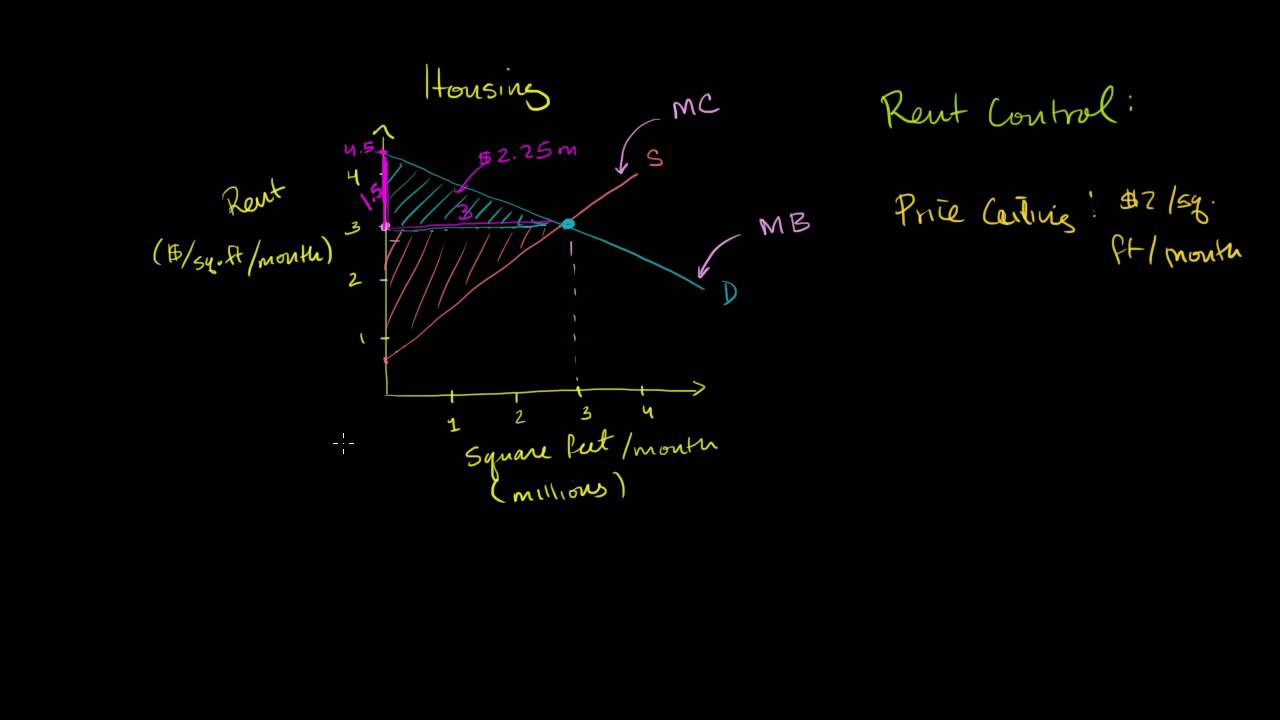 Housing
Rent
($/sq.ft/month)
4.5
4
3
2
1
1.5
$2.25m
3
MC
S
MB
D
1 2 3 4
Square feet/month
(millions)
Rent Control:
Price Ceiling: $2/sq.
ft/month